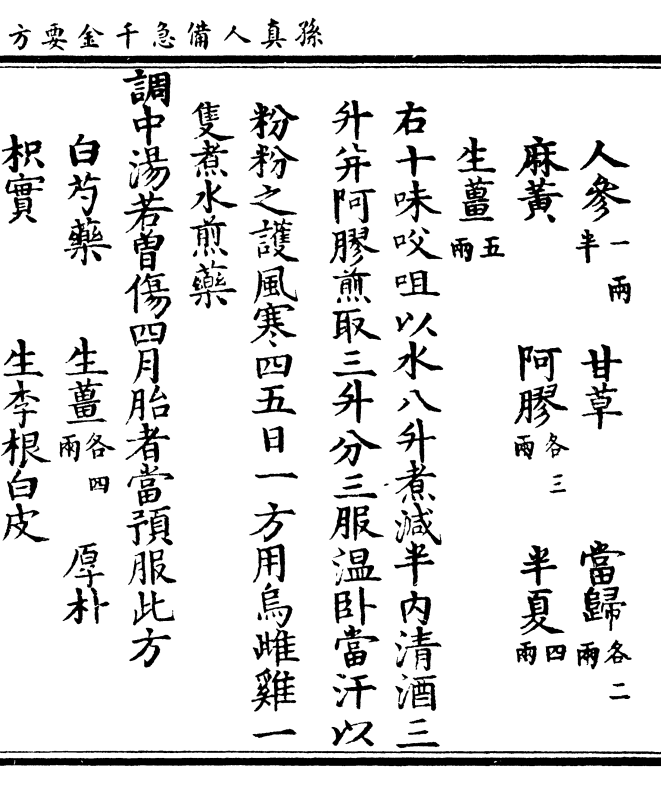 孫真人備急千金要方
人參一兩半　甘草　當歸各二兩
麻黃　阿膠各三兩　半夏四兩
生薑五兩
右十味㕮咀以水八升煮減半內清酒三
升并阿膠煎取三升分三服温卧當汗以
粉粉之護風寒四五日一方用烏雌雞一
隻煮水煎藥
調中湯若曾傷四月胎者當預服此方
白芍藥　生薑各四兩　厚朴
枳實　生李根白皮